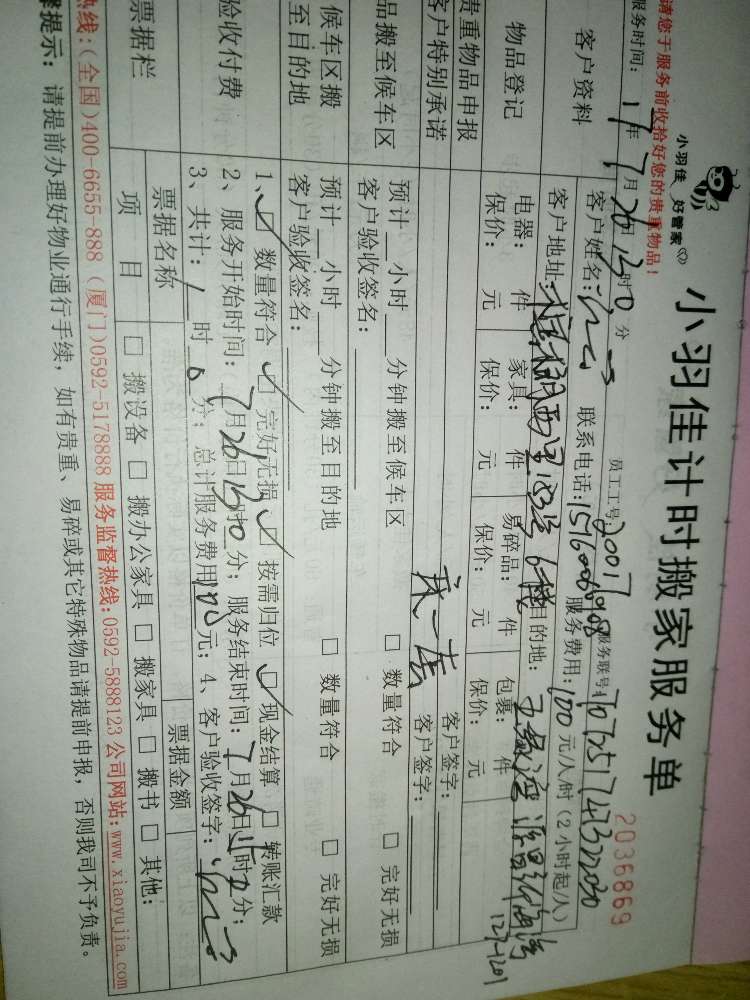 小羽佳计时搬家服务单
小羽佳 好管家
2036869
请您于服务前收拾好您的贵重物品！
员工工号: 20017 服务联号:
服务时间: 17年 7月 26日 13时 0分
客户资料 客户姓名: 联系电话: 服务费用: 100元/人/时（2小时起/人）
客户地址: 目的地:
127-1201
物品登记 电器: 件 家具: 件 易碎品: 件 包裹: 件
保价: 元 保价: 元 保价: 元 保价: 元
贵重物品申报 客户签字:
客户特别承诺 客户签字:
品搬至候车区 预计 小时 分钟搬至候车区 □ 数量符合 □ 完好无损
客户验收签名:
候车区搬至目的地 预计 小时 分钟搬至目的地 □ 数量符合 □ 完好无损
客户验收签名:
验收付费 1、□ 数量符合 □ 完好无损 □ 按需归位 □ 现金结算 □ 转账汇款
2、服务开始时间: 7月26日13时0分; 服务结束时间: 7月26日 时 分;
3、共计: 1时0分; 总计服务费用 元; 4、客户验收签字:
票据栏 票据名称 票据金额
项 目 □ 搬设备 □ 搬办公家具 □ 搬家具 □ 搬书 □ 其他:
热线:(全国)400-6655-888 (厦门)0592-5178888 服务监督热线:0592-5888123 公司网站:www.xiaoyujia.com
提示: 请提前办理好物业通行手续, 如有贵重、易碎或其它特殊物品请提前申报, 否则我司不予负责。